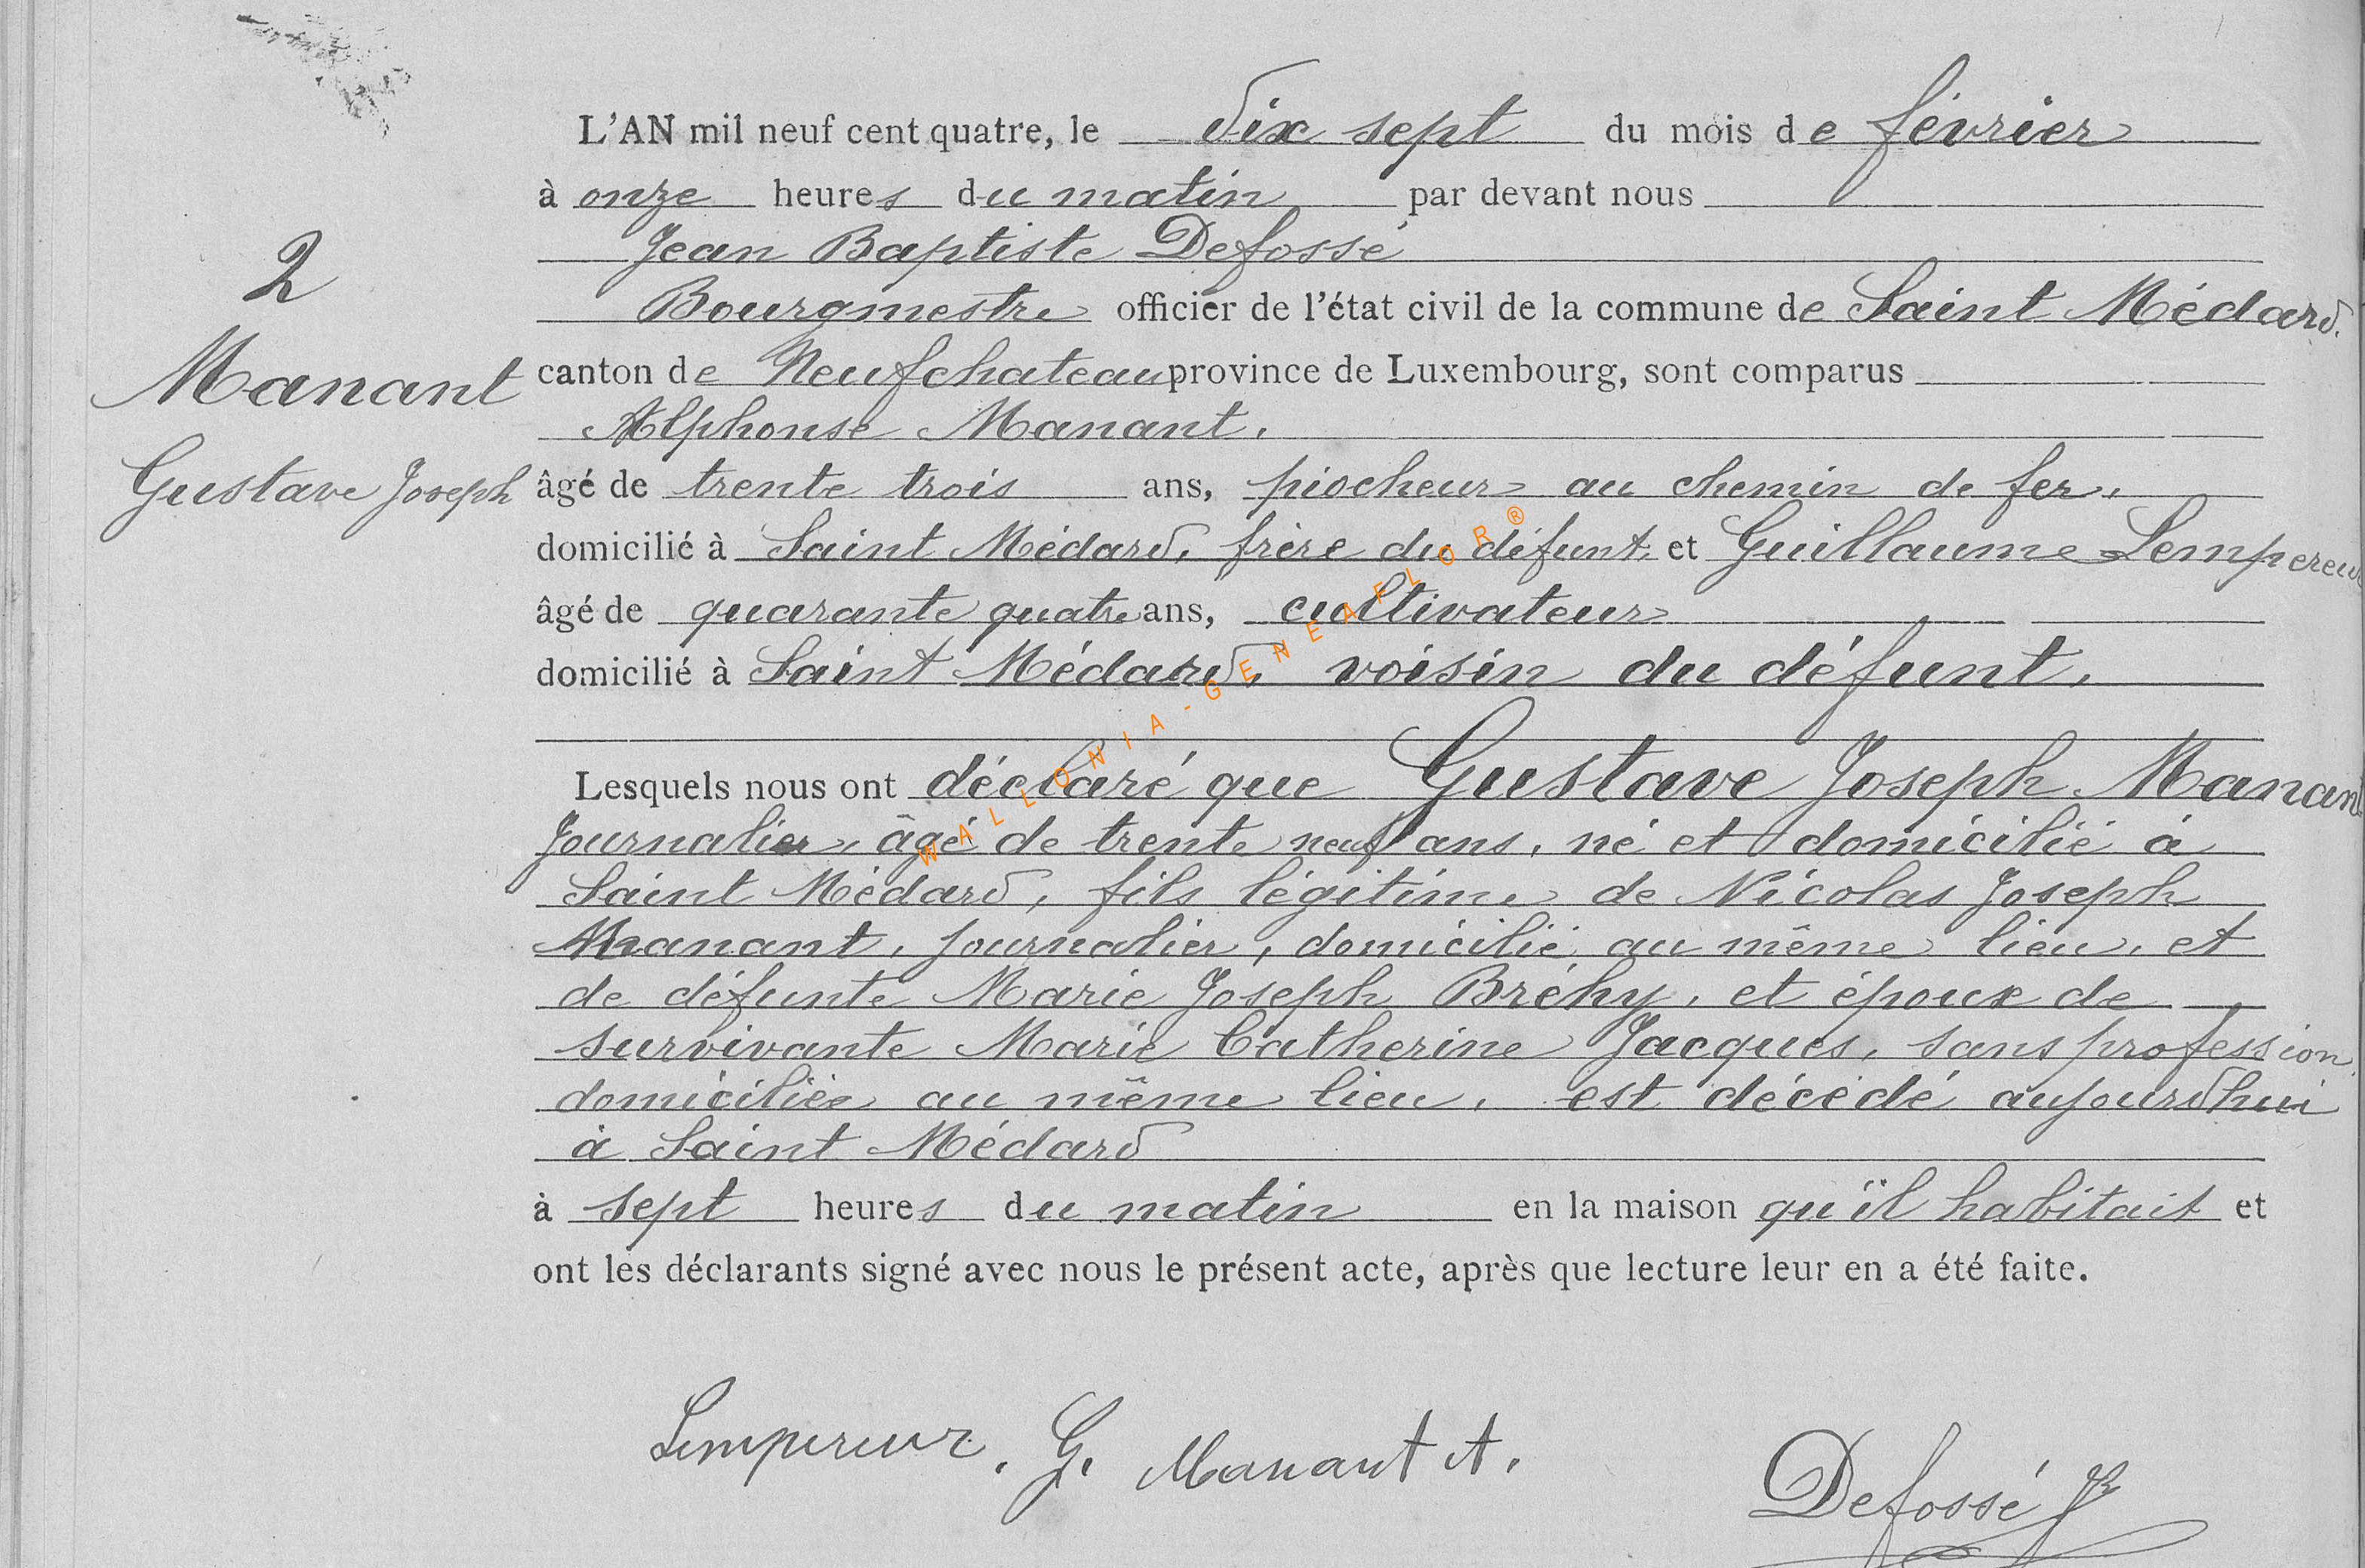 L'AN mil neuf cent quatre, le dix sept du mois de février
à onze heures du matin par devant nous
Jean Baptiste Defossé
Bourgmestre officier de l'état civil de la commune de Saint Médard.
canton de Neufchateau province de Luxembourg, sont comparus
Alphonse Manant.
âgé de trente trois ans, piocheur au chemin de fer.
domicilié à Saint Médard, frère du défunt, et Guillaume Lempereur
âgé de quarante quatre ans, cultivateur
domicilié à Saint Médard, voisin du défunt.
2
Manant
Gustave Joseph
Lesquels nous ont déclaré que Gustave Joseph Manant
Journalier, âgé de trente neuf ans, né et domicilié à
Saint Médard, fils légitime de Nicolas Joseph
Manant, journalier, domicilié au même lieu, et
de défunte Marie Joseph Bréhy, et époux de
survivante Marie Catherine Jacques, sans profession,
domiciliée au même lieu, est décédé aujourd'hui
à Saint Médard
à sept heures du matin en la maison qu'il habitait et
ont les déclarants signé avec nous le présent acte, après que lecture leur en a été faite.
Lempereur. G. Manant A.
Defossé JB
WALLONIA-GENEAFLOR®